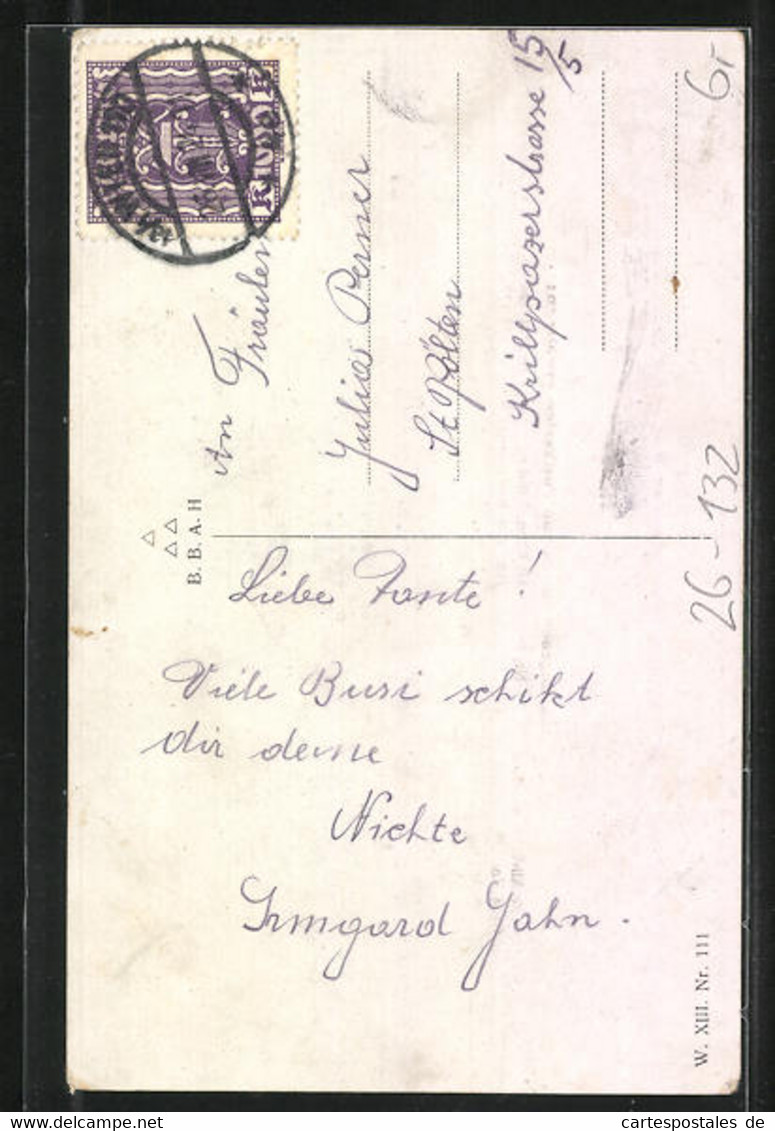 An Fräulein
Julia Perner
St Pölten
Krillpazerstrasse 15/5
B. B. A. H
Liebe Tante !
Viele Busi schikt
dir deine
Nichte
Irmgard Jahn.
W. XIII. Nr. 111
26-132
6,-
cartespostales de